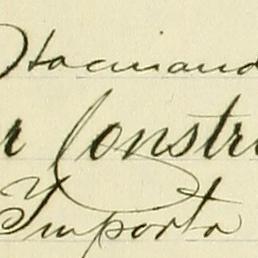 Haciand
r Constr
Importa